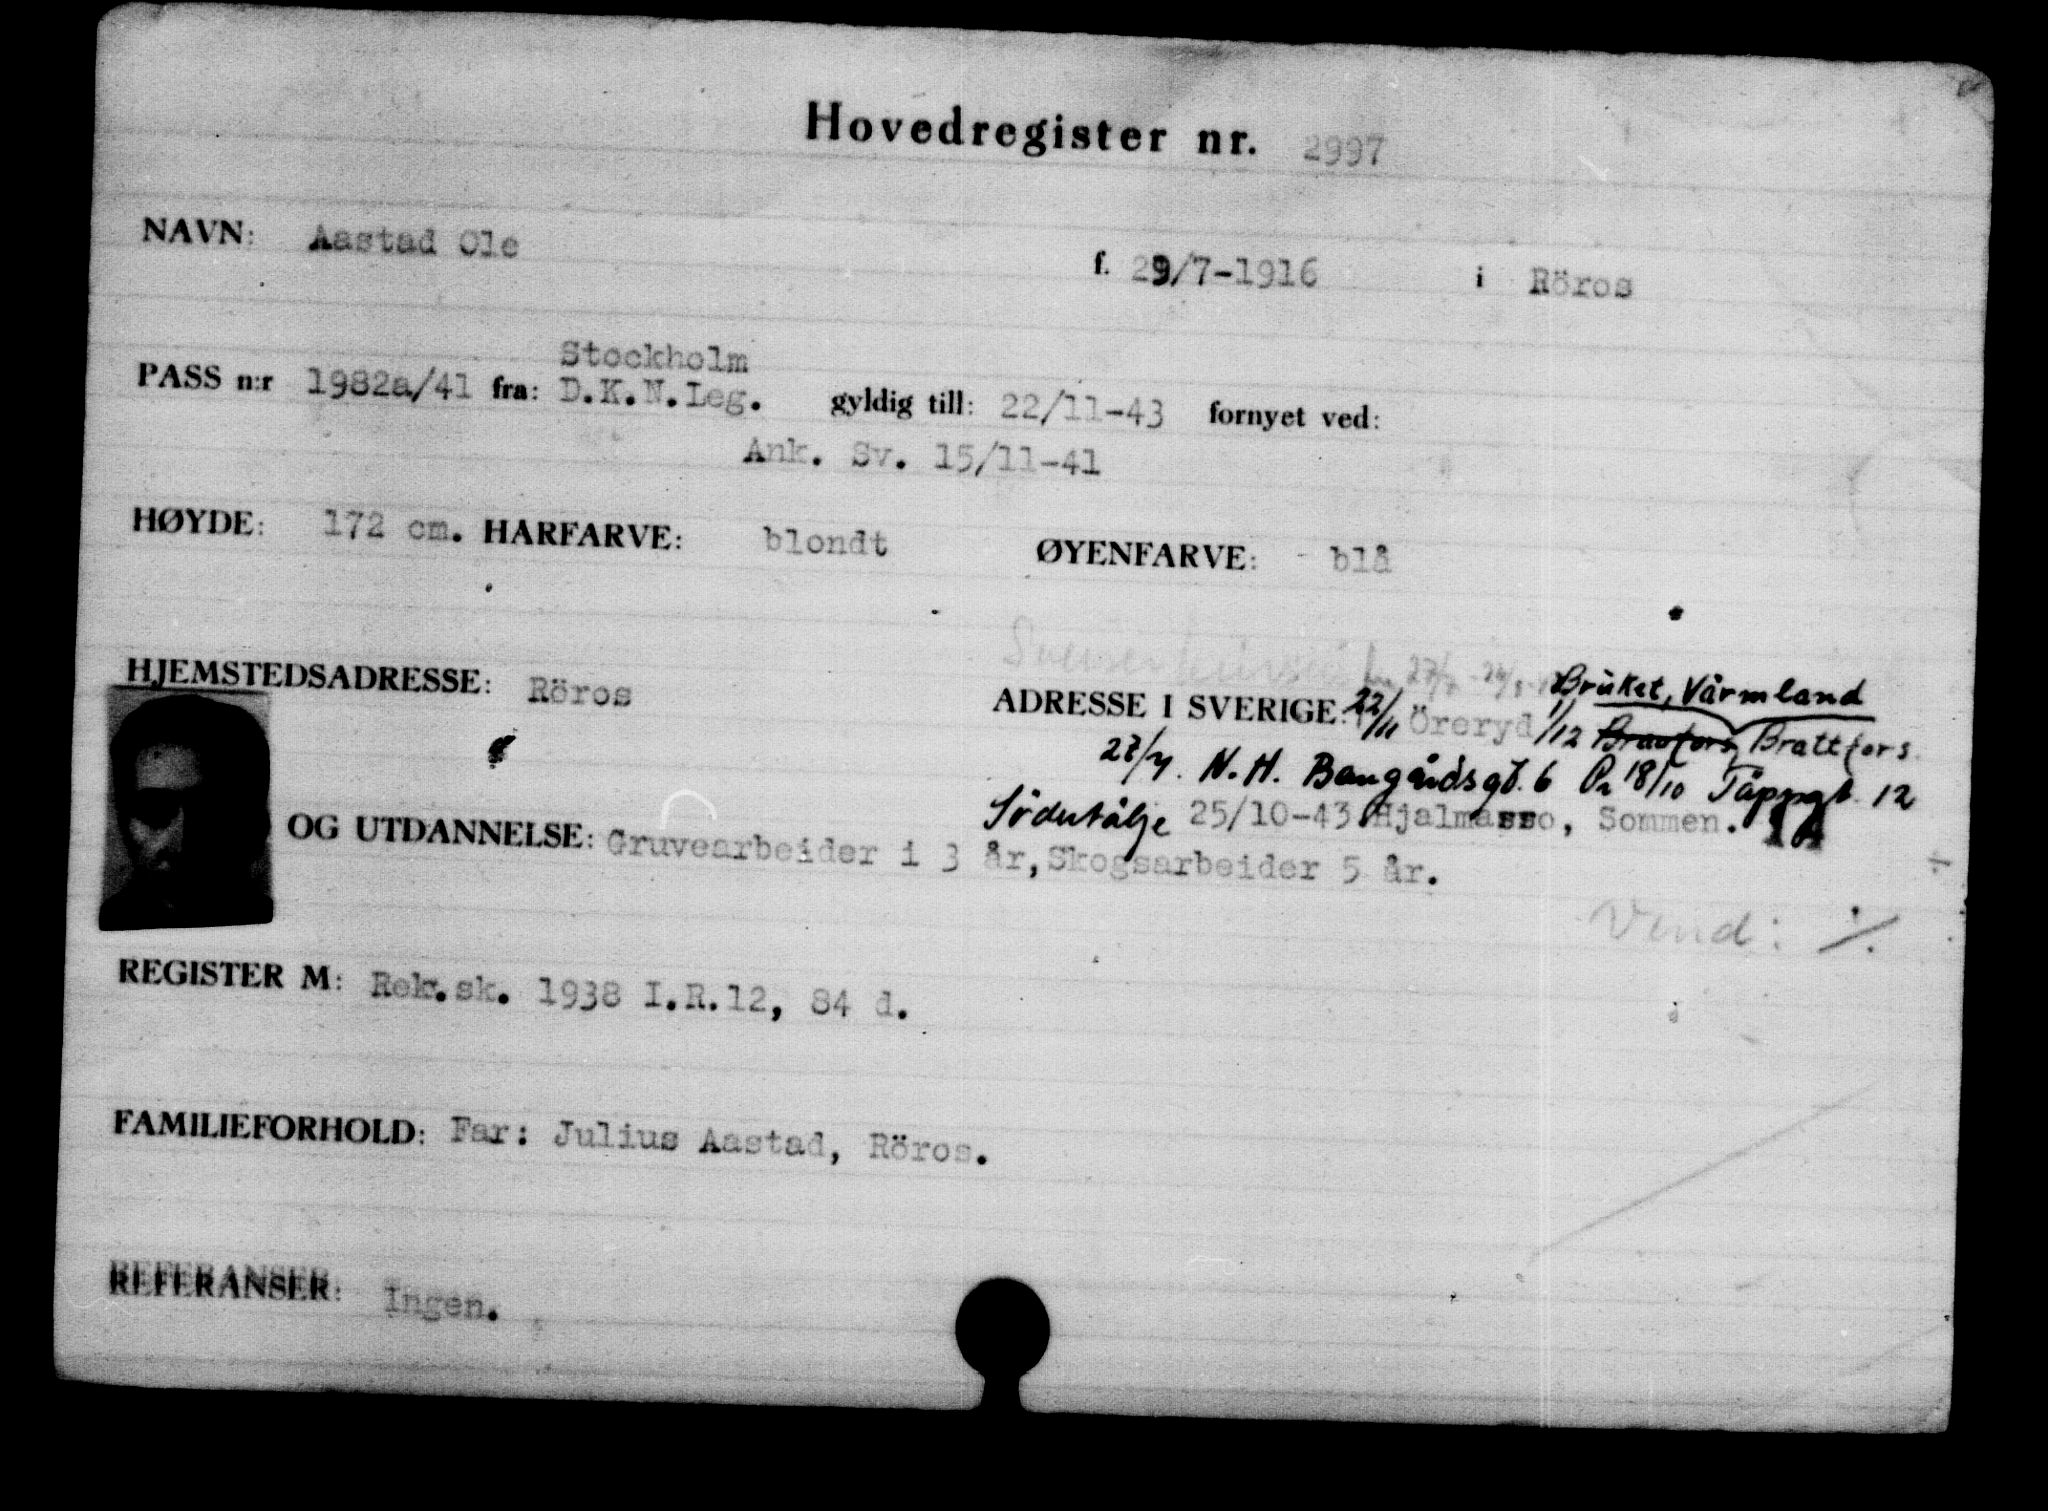 Hovedregister nr. 2997
NAVN: Aastad Ole f. 29/7-1916 i Röros
Stockholm
PASS n:r 1982a/41 fra: D.K.N.Leg. gyldig till: 22/11-43 fornyet ved:
Ank. Sv. 15/11-41
HØYDE: 172 cm. HARFARVE: blondt ØYENFARVE: blå
Bruket, Värmland
HJEMSTEDSADRESSE: Röros ADRESSE I SVERIGE: 22/11 Öreryd 1/12 Brattfors
27/7. N.H. Bangårdsgt. 6 18/10 Täppgt. 12
Södertälje 25/10-43 Hjalmarso, Sommen.
OG UTDANNELSE: Gruvearbeider i 3 år, Skogsarbeider 5 år.
Vend: ./.
REGISTER M: Rekr.sk. 1938 I.R.12, 84 d.
FAMILIEFORHOLD: Far: Julius Aastad, Röros.
REFERANSER: Ingen.